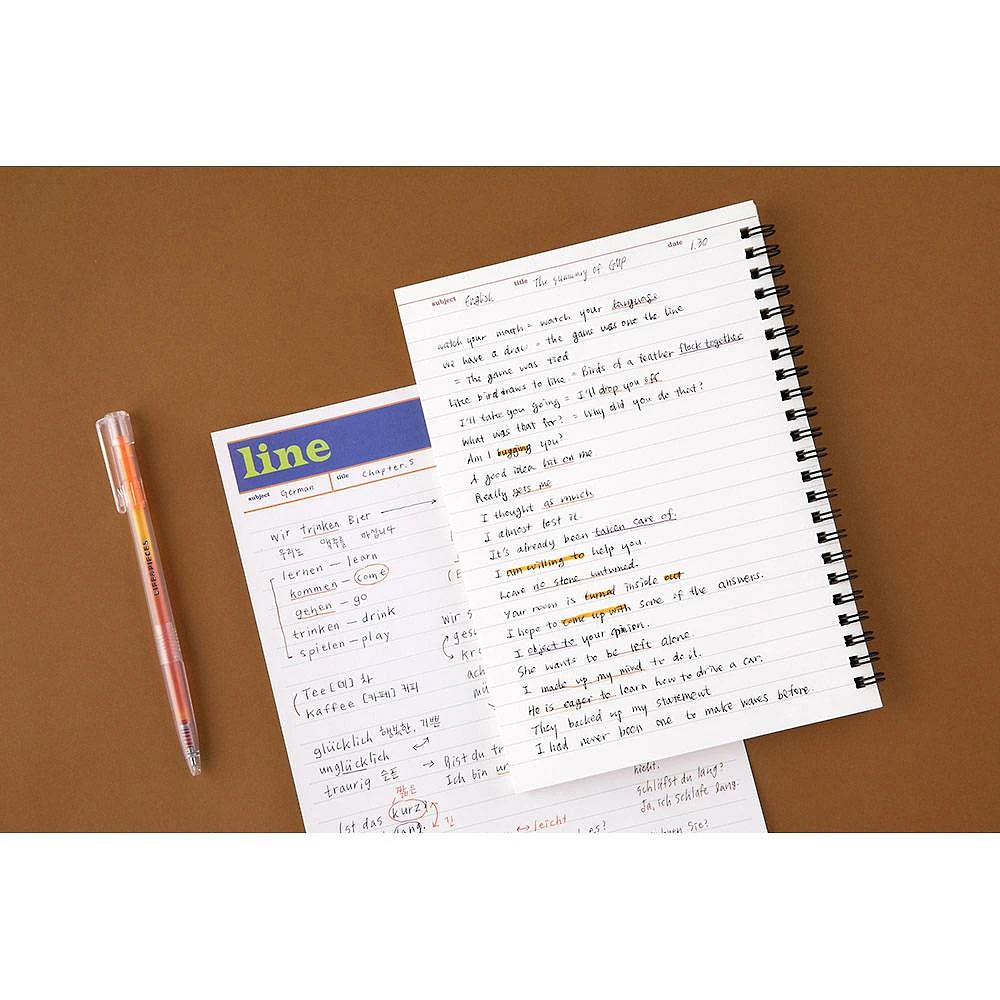 LIFE&PIECES
line
subject German title Chapter.5
wir trinken Bier
우리는 맥주를 마십니다
lernen – learn
kommen – come
gehen – go
trinken – drink
spielen – play
Tee [테] 차
Kaffee [카페] 커피
glücklich 행복한, 기쁜
unglücklich
traurig 슬픈
짧은
Ist das kurz?
lang. 긴
wir s
gesu
kr
ach
mü
Bist du tr
Ich bin un
leicht
es?
nicht.
schläfst du lang?
Ja, ich schlafe lang.
Sie?
subject English title The summary of GVP date 1.30
watch your mouth = watch your language
We have a draw = the game was one the line
= The game was tied
Like birddraws to line = Birds of a feather flock together
I'll take you going = I'll drop you off
What was that for? = Why did you do that?
Am I bugging you?
A good idea hit on me
Really gets me
I thought as much
I almost lost it.
It's already been taken care of.
I am willing to help you.
Leave no stone unturned.
Your room is turned inside out
I hope to come up with some of the answers.
I object to your opinion.
She wants to be left alone.
I made up my mind to do it.
He is eager to learn how to drive a car.
They backed up my statement
I had never been one to make waves before.